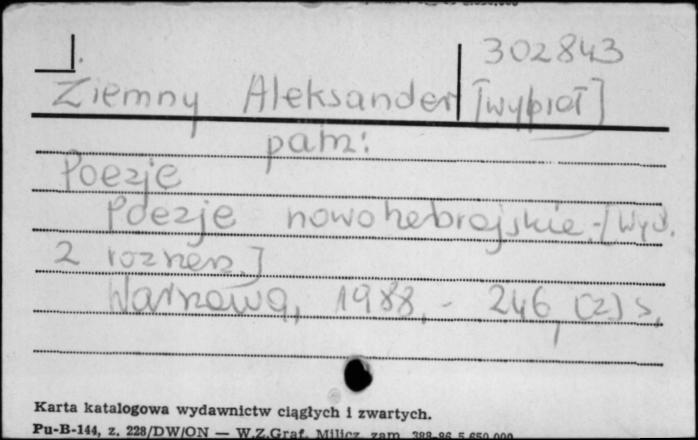 302843
Ziemny Aleksander [wybrał]
patrz:
Poezje
Poezje nowohebrajskie.-[Wyd.
2 rozszerz.]
Warszawa, 1988.- 246, (2) s,
Karta katalogowa wydawnictw ciągłych i zwartych.
Pu-B-144, z. 228/DW/ON — W.Z.Graf. Milicz zam. 388-86 5.650.000